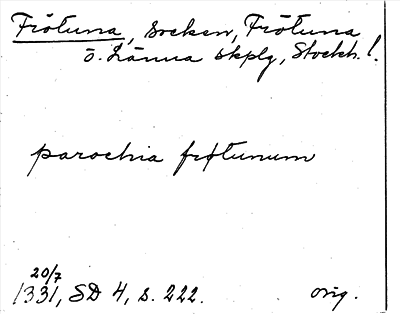 Frötuna, socken, Frötuna
o. Länna skplg, Stockh. l.
parochia frøtunum
20/7
1331, SD 4, s. 222. orig.